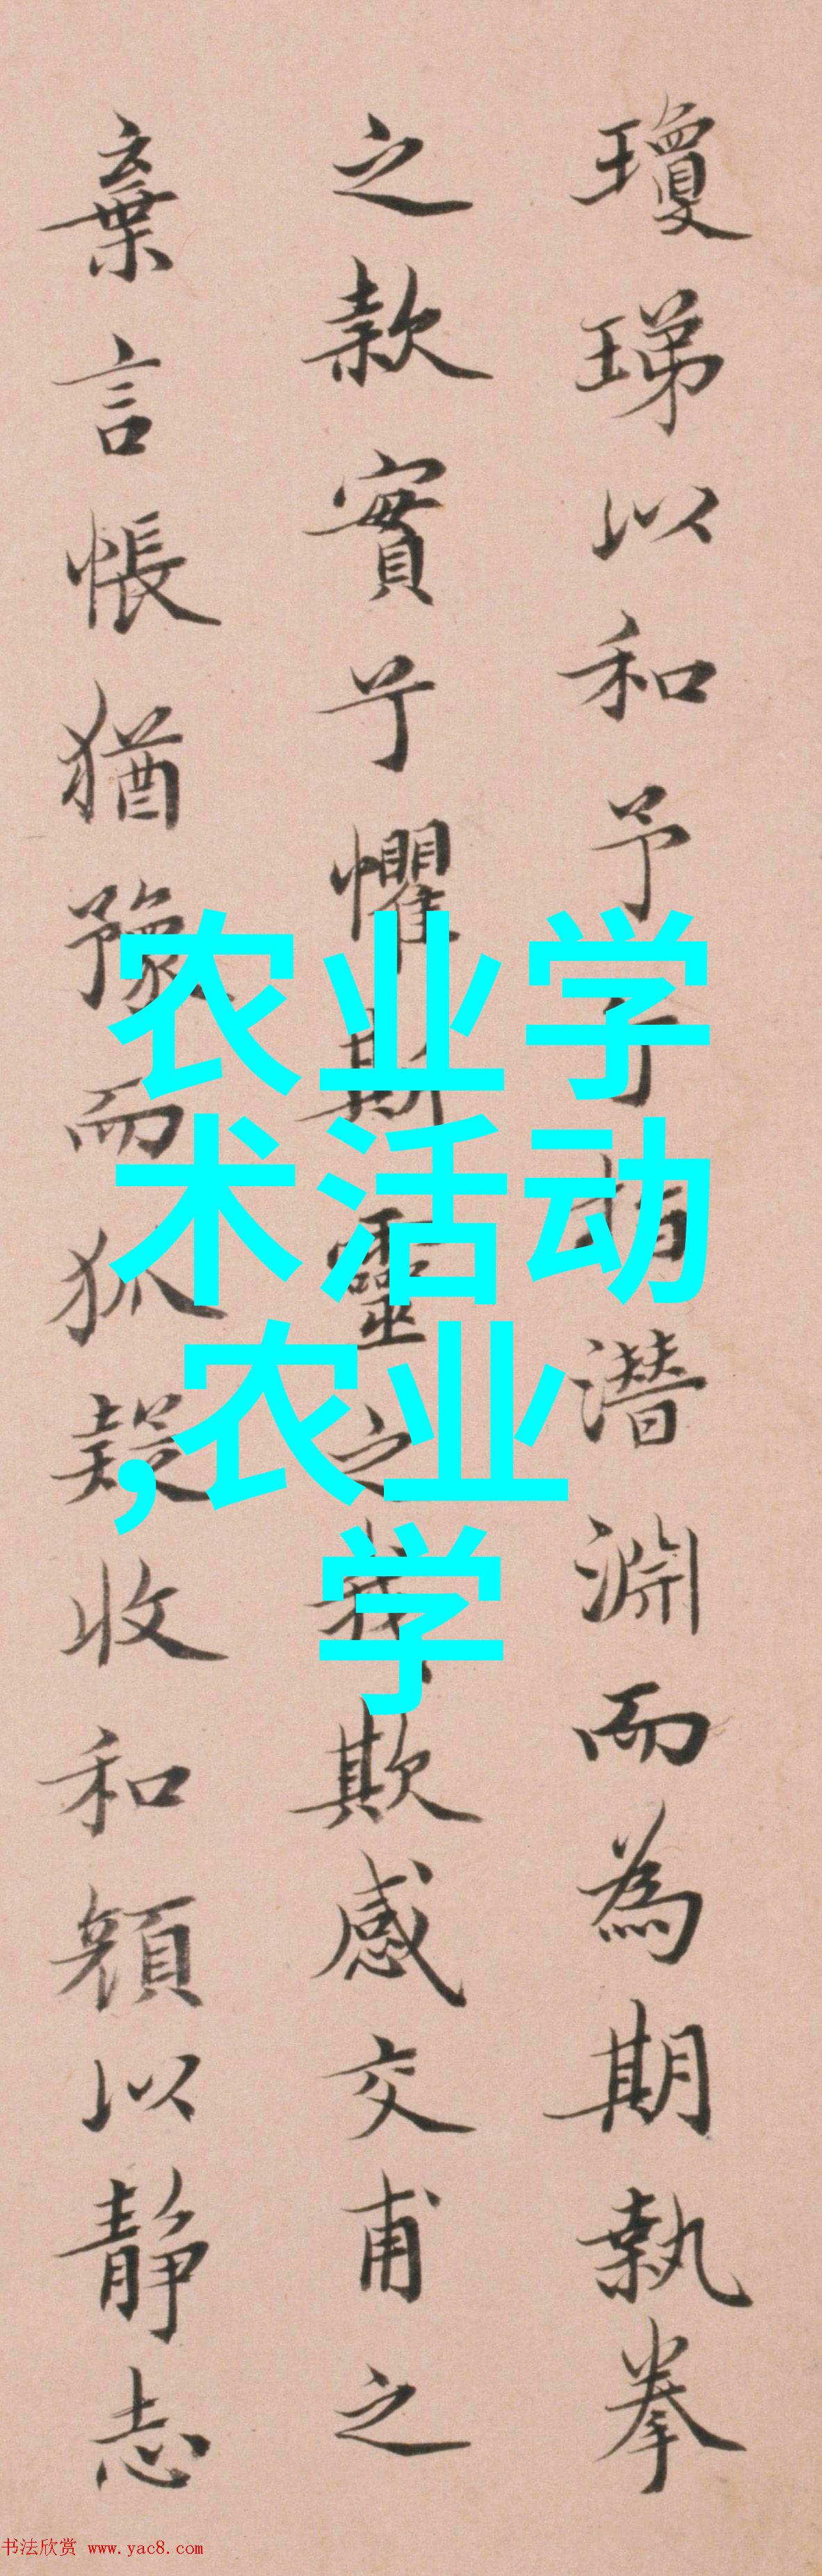 瓊珶以和予兮指潛淵而為期執拳
之款實兮懼斯靈之我欺感交甫之
棄言悵猶豫而狐疑收和顏以靜志
农业学
术活动
,农业
学
书法欣赏 www.yac8.com